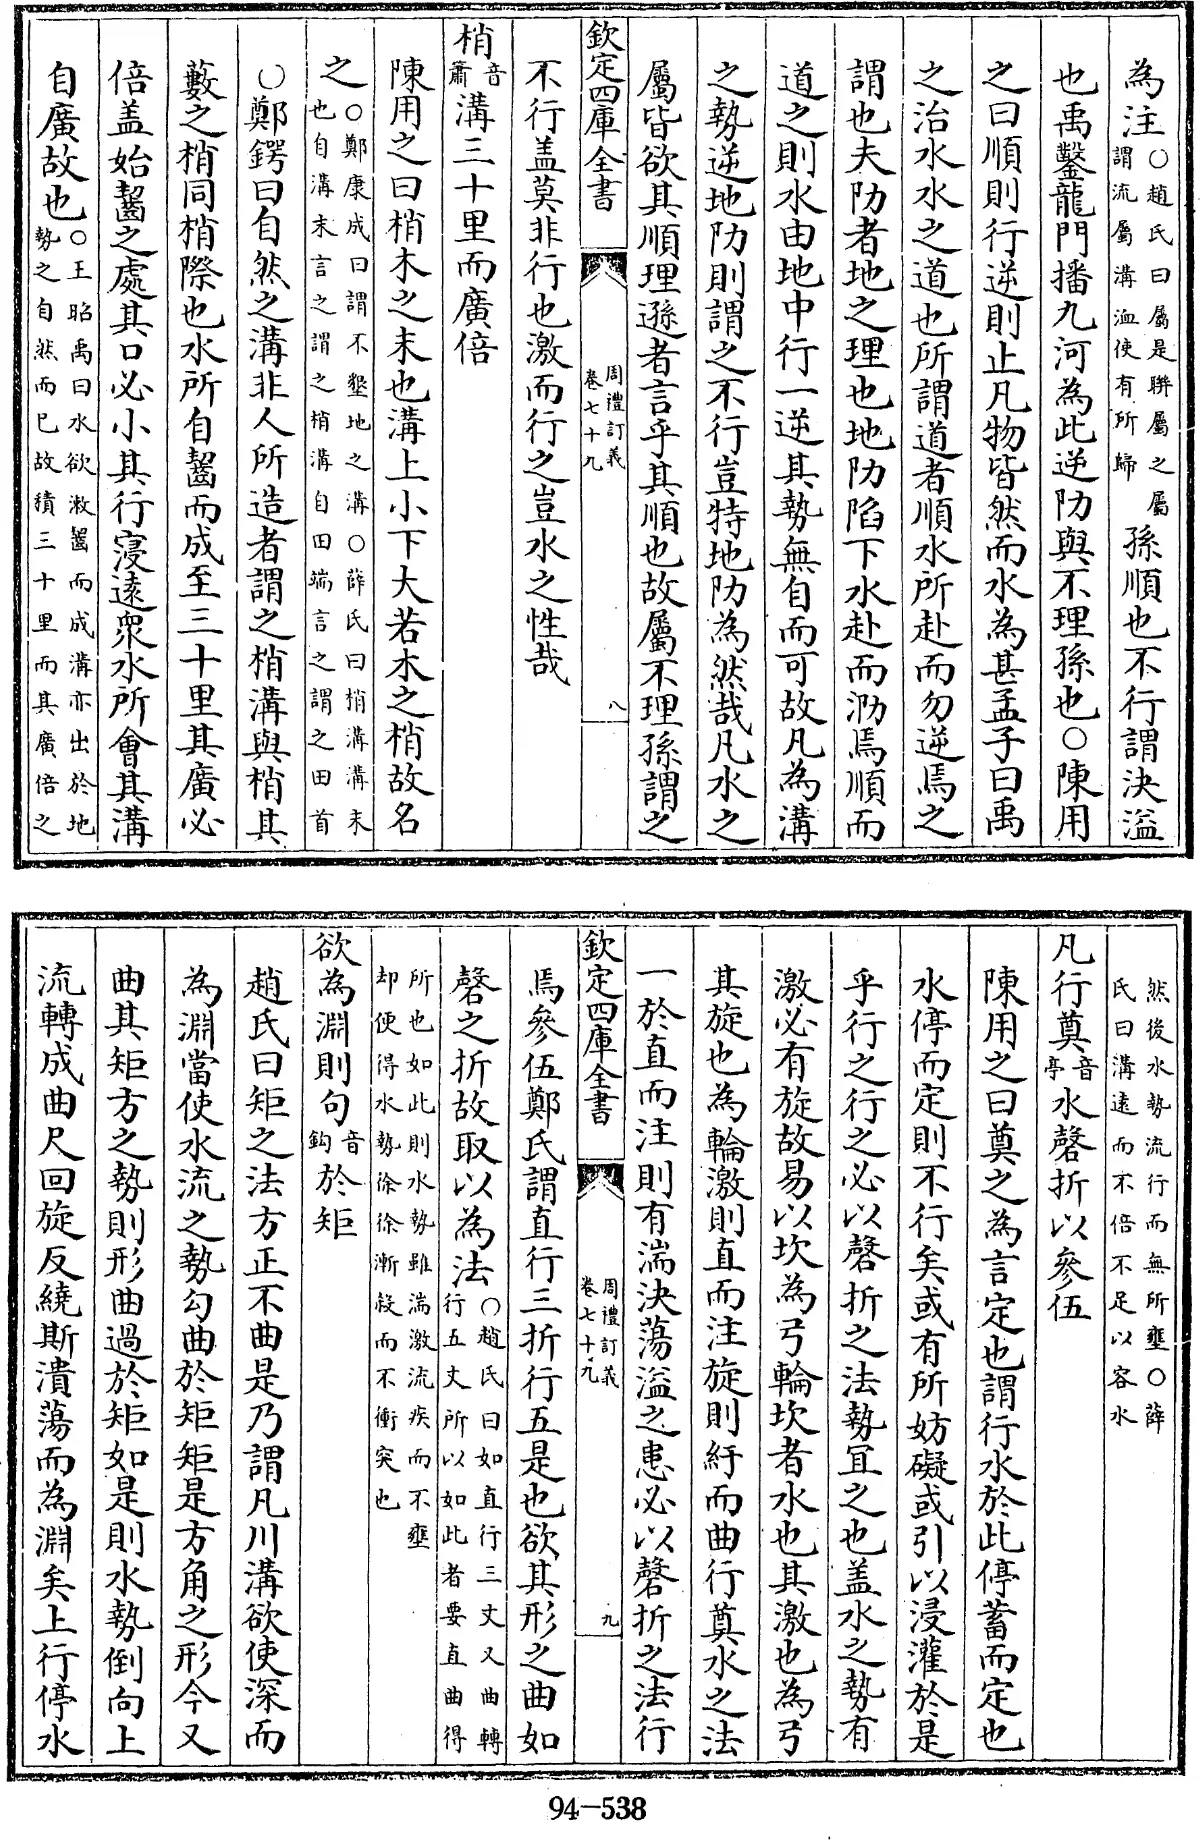 為注○趙氏曰屬是聯屬之屬謂流屬溝洫使有所歸孫順也不行謂決溢
也禹鑿龍門播九河為此逆防與不理孫也○陳用
之曰順則行逆則止凡物皆然而水為甚孟子曰禹
之治水水之道也所謂道者順水所赴而勿逆焉之
謂也夫防者地之理也地防陷下水赴而泐焉順而
道之則水由地中行一逆其勢無自而可故凡為溝
之勢逆地防則謂之不行豈特地防為然哉凡水之
屬皆欲其順理遜者言乎其順也故屬不理孫謂之
欽定四庫全書 周禮訂義卷七十九 八
不行盖莫非行也激而行之豈水之性哉
梢音蕭溝三十里而廣倍
陳用之曰梢木之末也溝上小下大若木之梢故名
之○鄭康成曰謂不墾地之溝○薛氏曰梢溝溝末也自溝末言之謂之梢溝自田端言之謂之田首
○鄭鍔曰自然之溝非人所造者謂之梢溝與梢其
藪之梢同梢際也水所自齧而成至三十里其廣必
倍盖始齧之處其口必小其行寖遠衆水所會其溝
自廣故也○王昭禹曰水欲漱齧而成溝亦出於地勢之自然而已故積三十里而其廣倍之
然後水勢流行而無所壅○薛氏曰溝遠而不倍不足以容水
凡行奠音亭水磬折以參伍
陳用之曰奠之為言定也謂行水於此停蓄而定也
水停而定則不行矣或有所妨礙或引以浸灌於是
乎行之行之必以磬折之法勢宜之也盖水之勢有
激必有旋故易以坎為弓輪坎者水也其激也為弓
其旋也為輪激則直而注旋則紆而曲行奠水之法
一於直而注則有湍決蕩溢之患必以磬折之法行
欽定四庫全書 周禮訂義卷七十九 九
焉參伍鄭氏謂直行三折行五是也欲其形之曲如
磬之折故取以為法○趙氏曰如直行三丈又曲轉行五丈所以如此者要直曲得
所也如此則水勢雖湍激流疾而不壅却便得水勢徐徐漸殺而不衝突也
欲為淵則句音鈎於矩
趙氏曰矩之法方正不曲是乃謂凡川溝欲使深而
為淵當使水流之勢勾曲於矩矩是方角之形今又
曲其矩方之勢則形曲過於矩如是則水勢倒向上
流轉成曲尺回旋反繞斯潰蕩而為淵矣上行停水
94-538